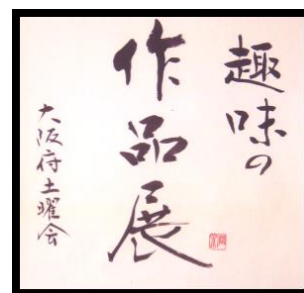 趣味の
作品展
大阪府土曜会